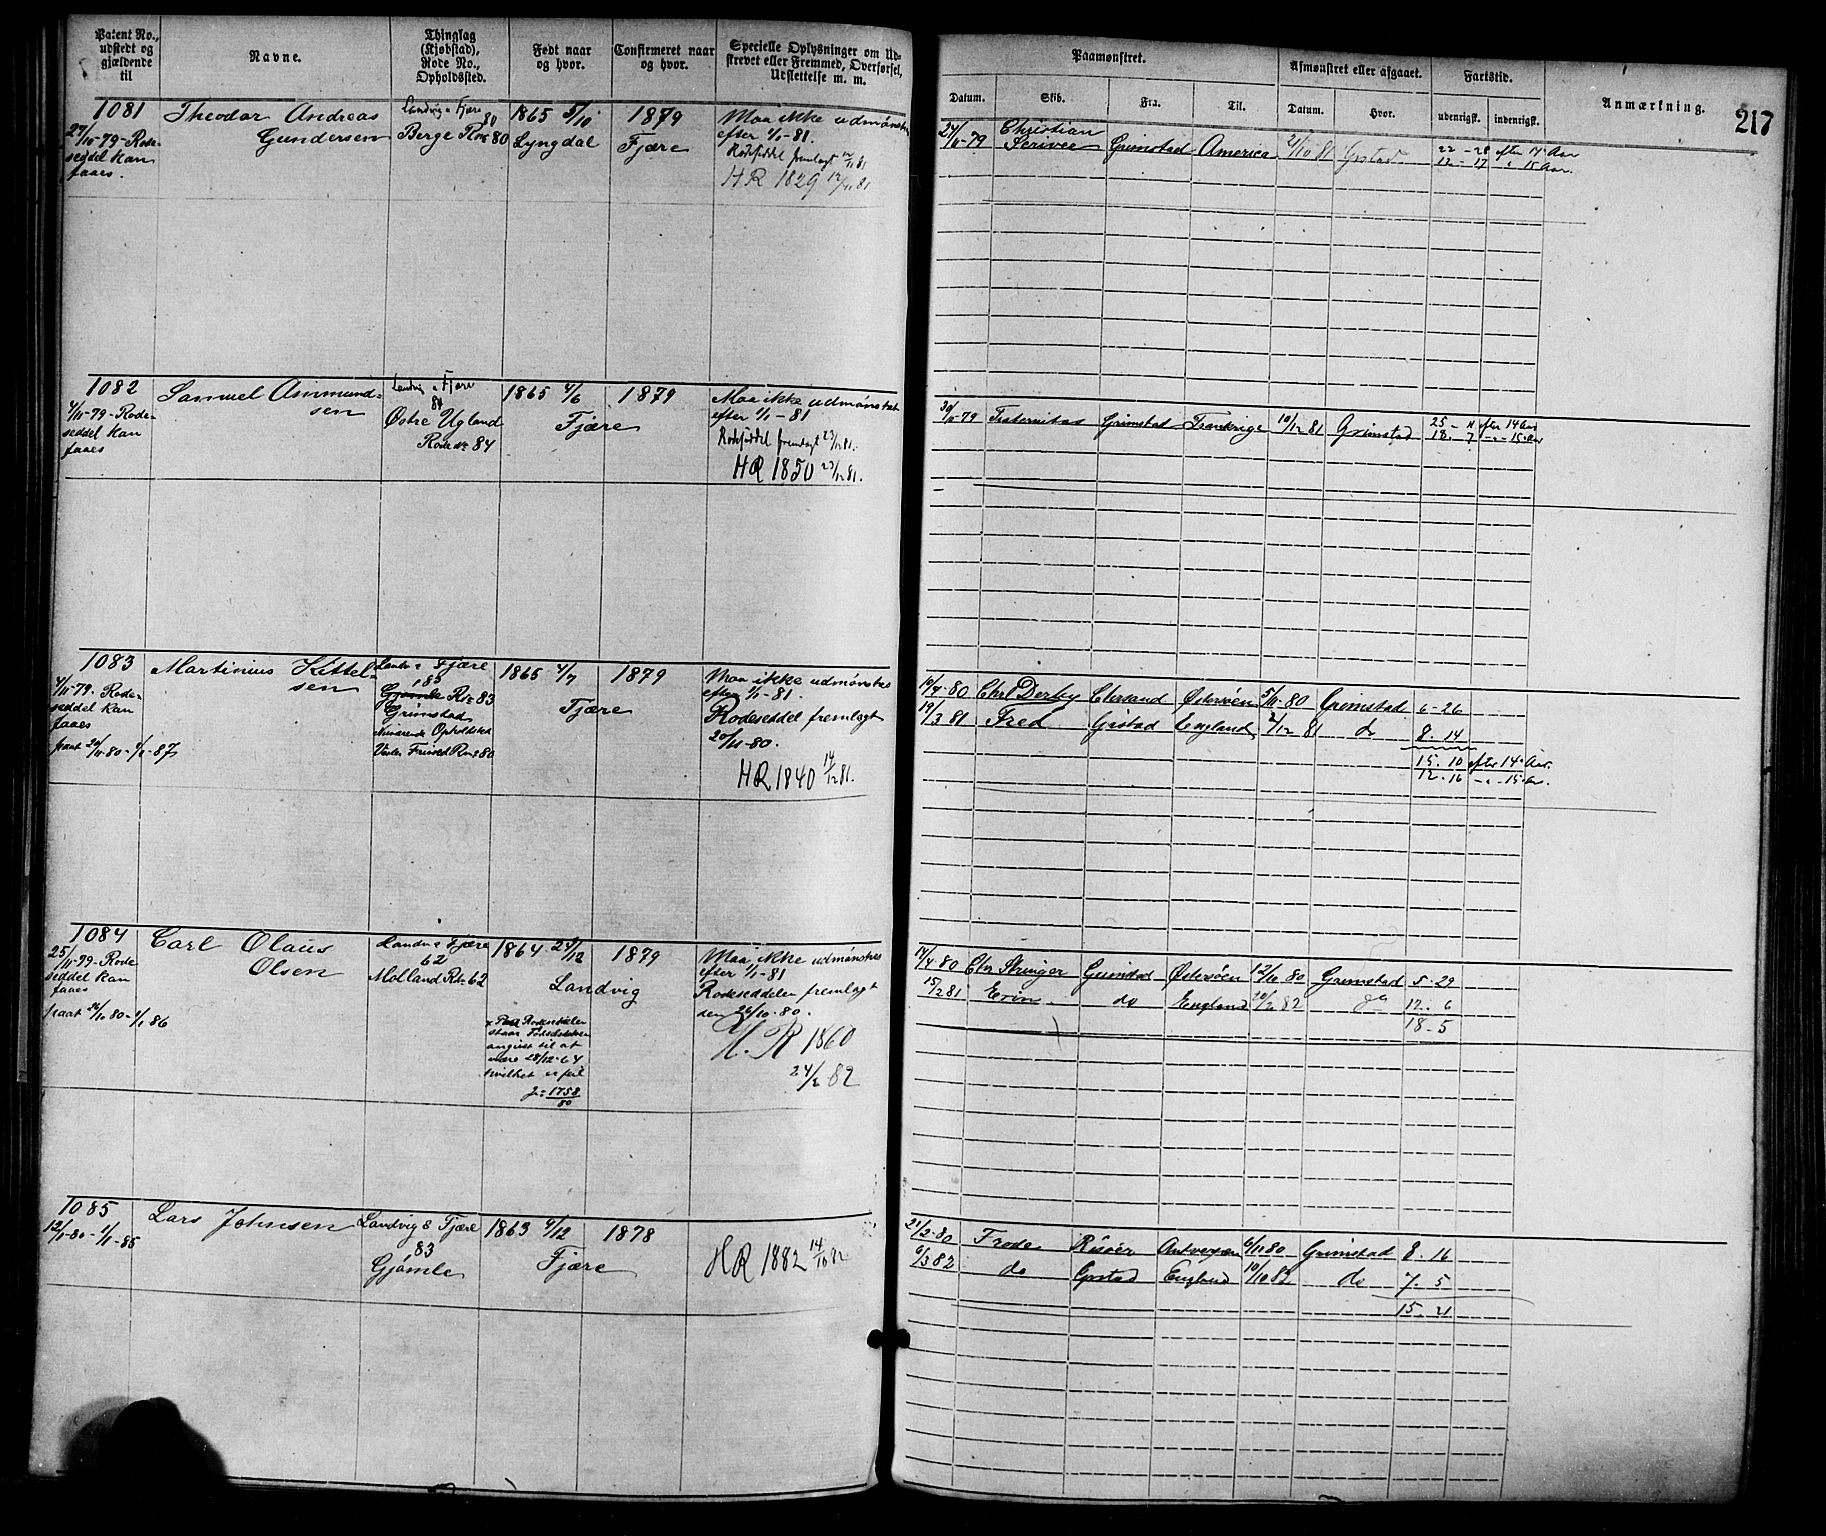 Patent No., udstedt og gjældende til
Navne.
Thinglag (Kjøbstad), Rode No., Opholdssted.
Født naar og hvor.
Confirmeret naar og hvor.
Specielle Oplysninger om Udskrevet eller Fremmed, Overførsel, Udslettelse m. m.
Paamønstret.
Afmønstret eller afgaaet.
Fartstid.
Anmærkning.
Datum.
Skib.
Fra.
Til.
Datum.
Hvor.
udenrigsk.
indenrigsk.
217
1081
27/10-79-Rode-
seddel kan
faaes.
Theodor Andreas
Gundersen
Landvig & Fjære
80
Berge Rne 80
1865 5/10
Lyngdal
1879
Fjære
Maa ikke udmønstres
efter 1/1-81.
Rodeseddel fremlagt 12/11 81
HR 1829 12/11 81
Christian
Scriver
Grimstad
America
2/10 81
Grstad
22 - 28 efter 14 Aar
12 - 17 " 15 Aar.
1082
4/11-79-Rode-
seddel kan
faaes
Samuel Ammund-
sen
Landvig & Fjære
84
Østre Ugland
Rode No 84
1865 4/6
Fjære
1879
Maa ikke udmønstres
efter 1/1-81
Rodeseddel fremlagt 23/12 81.
HR 1850 23/12 81.
30/11-79
Fraternitas
Grimstad
Frankrige
10/12 81
Grimstad
25 - 11 efter 14 Aar
18. 7 -"- 15 Aar
1083
4/11-79. Rode-
seddel kan
faaes
fraat 20/11-80-1/1-87
Martinius Kittel-
sen
Landv & Fjære
183
Gjømle Rne 83
Grimstad
Nuværende Opholdsted
1865 4/7
Fjære
1879
Maa ikke udmønstres
efter 1/1-81.
Rodeseddel fremlagt
20/11-80.
HR 1840 14/12 81.
10/4-80
Chrl Derby
Chrsand
Østersøen
5/11-80
Grimstad
6-26
19/3 81
Fred
Grstad
England
2/12 81
do
8. 14
15. 10 efter 14 Aar.
12. 16 -"- 15 Aar.
1084
25/11-79-Rode
seddel kan
faaes
fraat 26/10 80-1/1 86
Carl Olaus
Olsen
Landv & Fjære
62
Molland Rne 62
1864 24/12
Landvig
1879
Rodeseddelen
staar Fødselsdatoen
angivet til at
være 28/12-64
hvilket er feil
Jr 1758/80
Maa ikke udmønstres
efter 1/1-81
Rodeseddelen fremlagt
den 26/10-80.
H. R 1860
24/2 82
14/4-80
Chr Stringer
Grimstad
Østersøen
12/10 80
Grimstad
5-29
15/2 81
Erin
do
England
20/2 82
do
12. 6
18-5
1085
12/1-80-1/1-85
Lars Johnsen
Landvig & Fjære
83
Gjømle
1863 9/12
Fjære
1878
HR 1882 14/10 82
21/2-80
Frode
Risøer
Antverpen
6/11 80
Grimstad
8. 16
6/3 82
do
Grstad
England
10/10 82
do
7. 5
15. 21